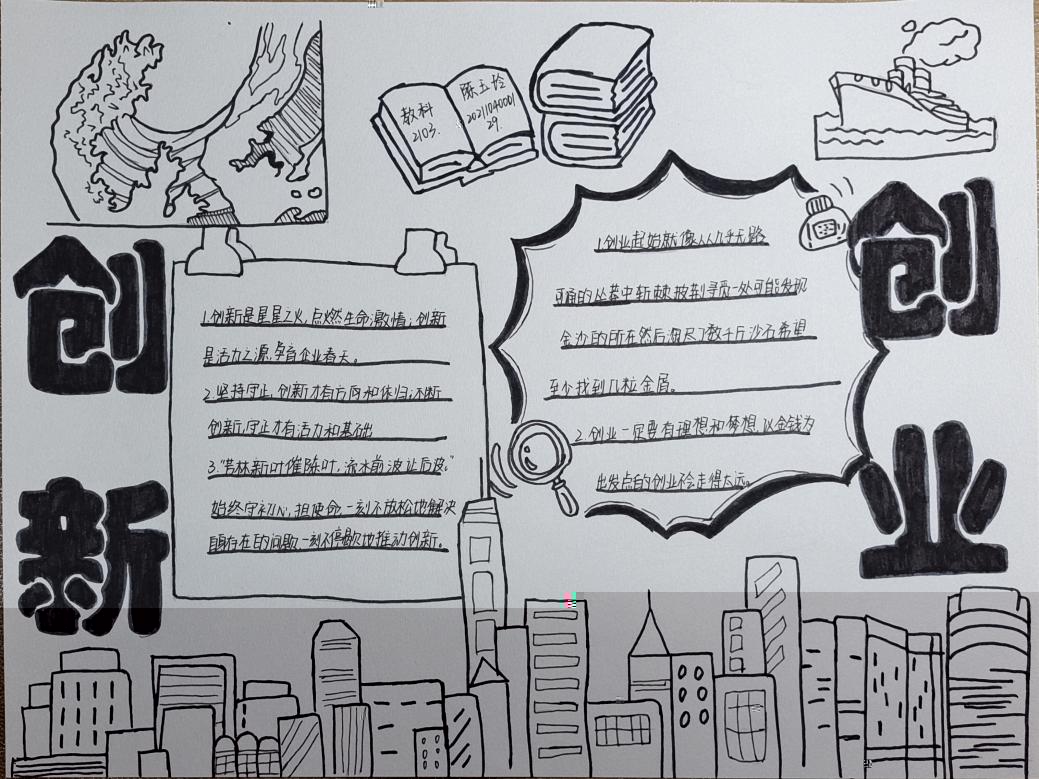 教科
2103.
陈五玲
20211040001
29.
创
新
1.创新是星星之火,点燃生命激情;创新
是活力之源,孕育企业春天。
2.坚持守正,创新才有方向和依归;不断
创新,守正才有活力和基础
3."芳林新叶催陈叶,流水前波让后波。"
始终守初心,担使命一刻不放松地解决
自身存在的问题,一刻不停歇地推动创新。
1.创业起始就像从几乎无路
可通的丛莽中斩棘披荆寻觅一处可能发现
金沙的所在然后淘尽了数千斤沙石希望
至少找到几粒金屑。
2.创业一定要有理想和梦想,以金钱为
出发点的创业不会走得太远。
创
业